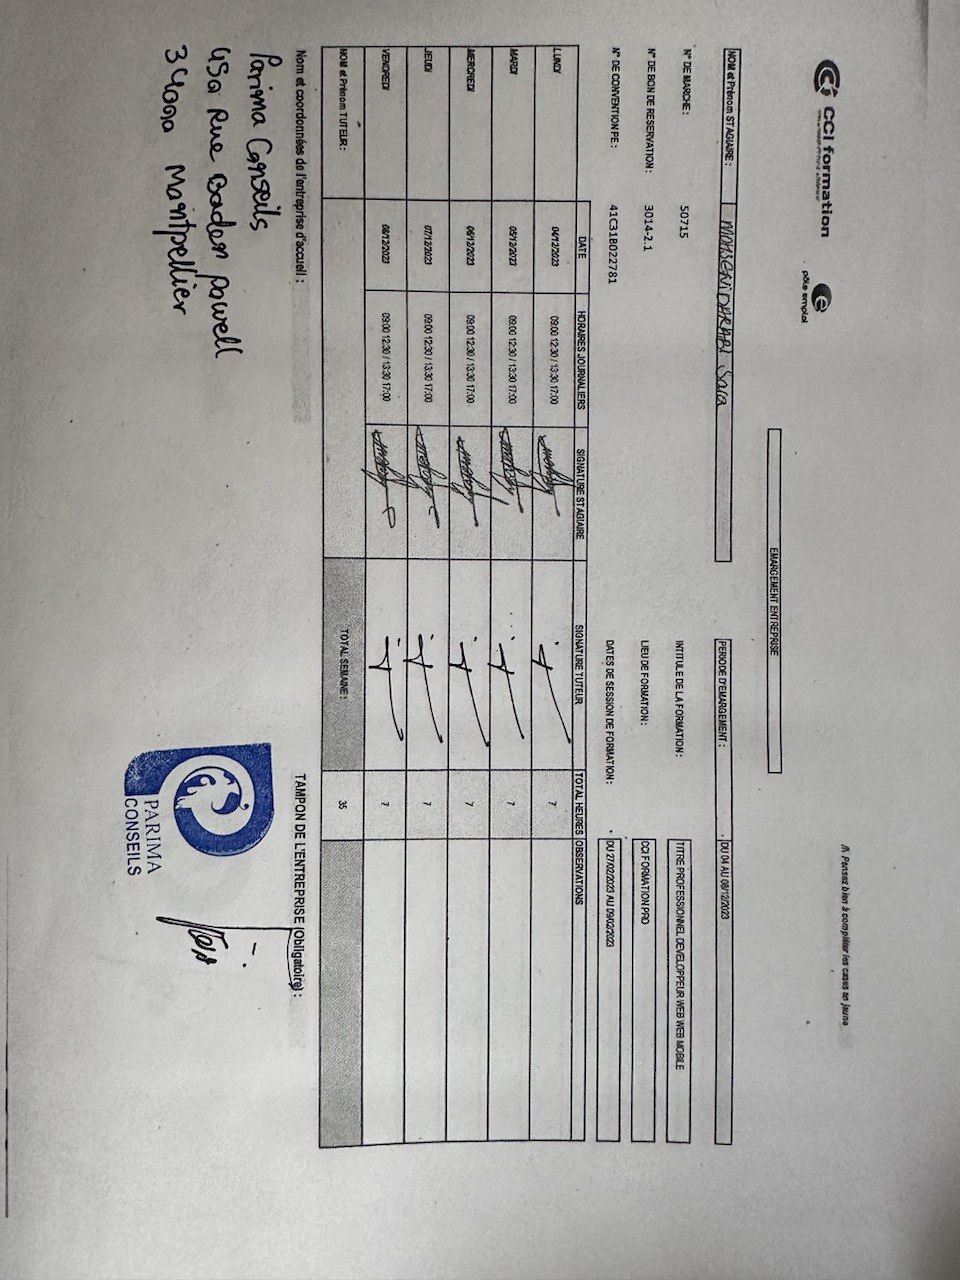 CCI formation
pôle emploi
⚠ Pensez bien à compléter les cases en jaune
EMARGEMENT ENTREPRISE
NOM et Prénom STAGIAIRE : MOHSENIDERABI Sara
PERIODE D'EMARGEMENT : DU 04 AU 08/12/2023
N° DE MARCHE : 50715
INTITULE DE LA FORMATION : TITRE PROFESSIONNEL DEVELOPPEUR WEB WEB MOBILE
N° DE BON DE RESERVATION : 3014-2.1
LIEU DE FORMATION : CCI FORMATION PRO
N° DE CONVENTION PE : 41C31B022781
DATES DE SESSION DE FORMATION : DU 27/02/2023 AU
DATE HORAIRES JOURNALIERS SIGNATURE STAGIAIRE SIGNATURE TUTEUR TOTAL HEURES OBSERVATIONS
LUNDI 04/12/2023 09:00 12:30 / 13:30 17:00 7
MARDI 05/12/2023 09:00 12:30 / 13:30 17:00 7
MERCREDI 06/12/2023 09:00 12:30 / 13:30 17:00 7
JEUDI 07/12/2023 09:00 12:30 / 13:30 17:00 7
VENDREDI 08/12/2023 09:00 12:30 / 13:30 17:00 7
NOM et Prénom TUTEUR : TOTAL SEMAINE : 35
Nom et coordonnées de l'entreprise d'accueil :
TAMPON DE L'ENTREPRISE (Obligatoire) :
Parima Conseils
450 Rue Baden Powell
34000 Montpellier
PARIMA
CONSEILS